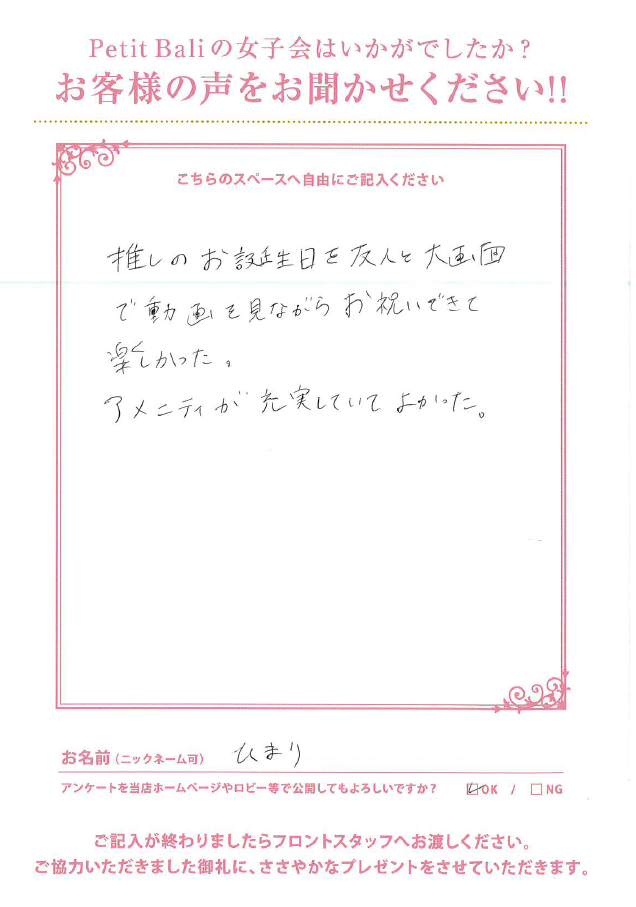 Petit Baliの女子会はいかがでしたか?
お客様の声をお聞かせください!!
こちらのスペースへ自由にご記入ください
推しのお誕生日を友人と大画面
で動画を見ながらお祝いできて
楽しかった。
アメニティが充実していてよかった。
お名前(ニックネーム可) ひまり
アンケートを当店ホームページやロビー等で公開してもよろしいですか? ☑OK / □NG
ご記入が終わりましたらフロントスタッフへお渡しください。
ご協力いただきました御礼に、ささやかなプレゼントをさせていただきます。